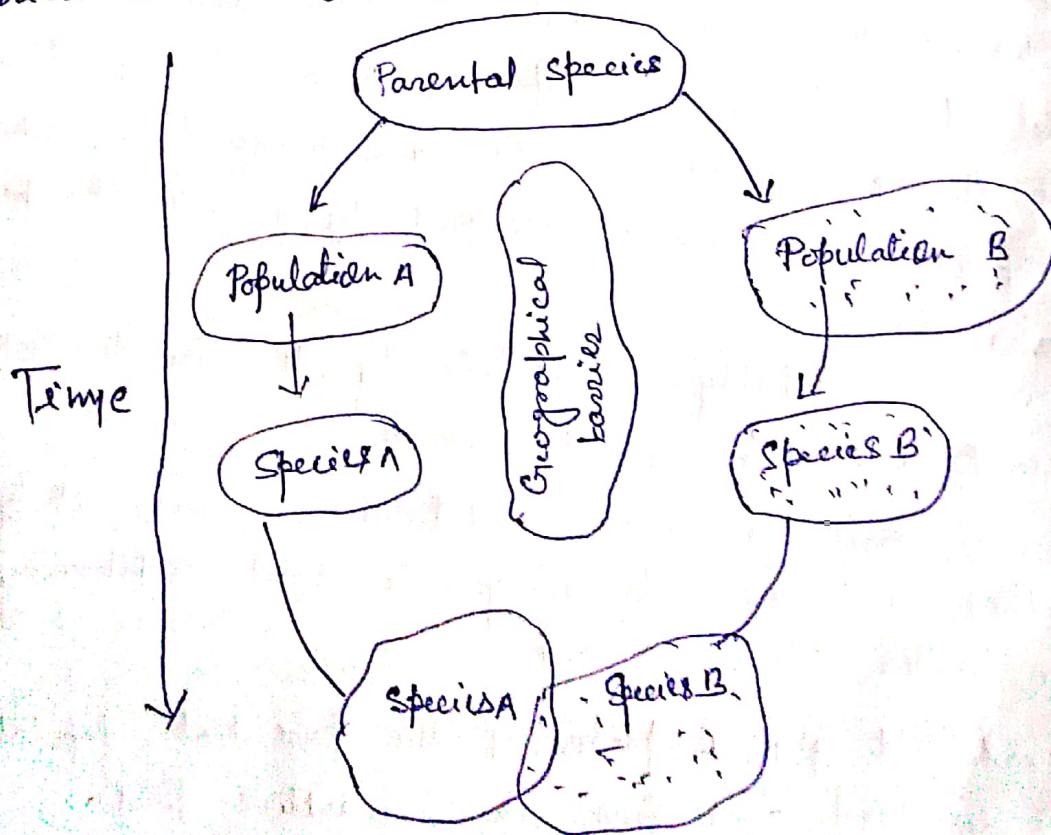 Parental species
Population A
Geographical
barrier
Population B
Timye
Species A
Species B
Species A
Species B